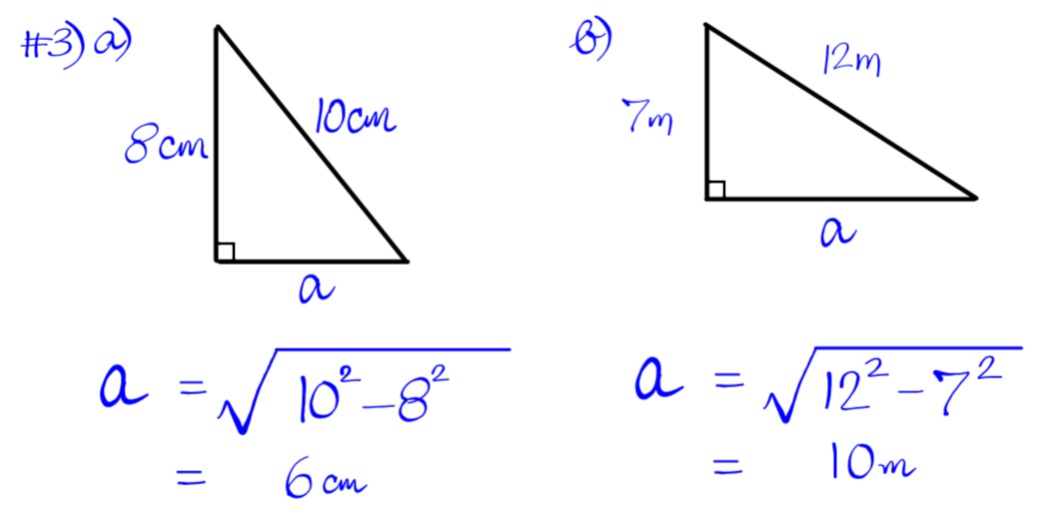 #3) a)
8cm
10cm
a
a = √(10² – 8²)
= 6 cm
b)
7m
12m
a
a = √(12² – 7²)
= 10m